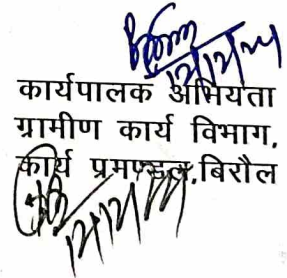 कार्यपालक अभियंता
ग्रामीण कार्य विभाग,
कार्य प्रमण्डल,बिरौल